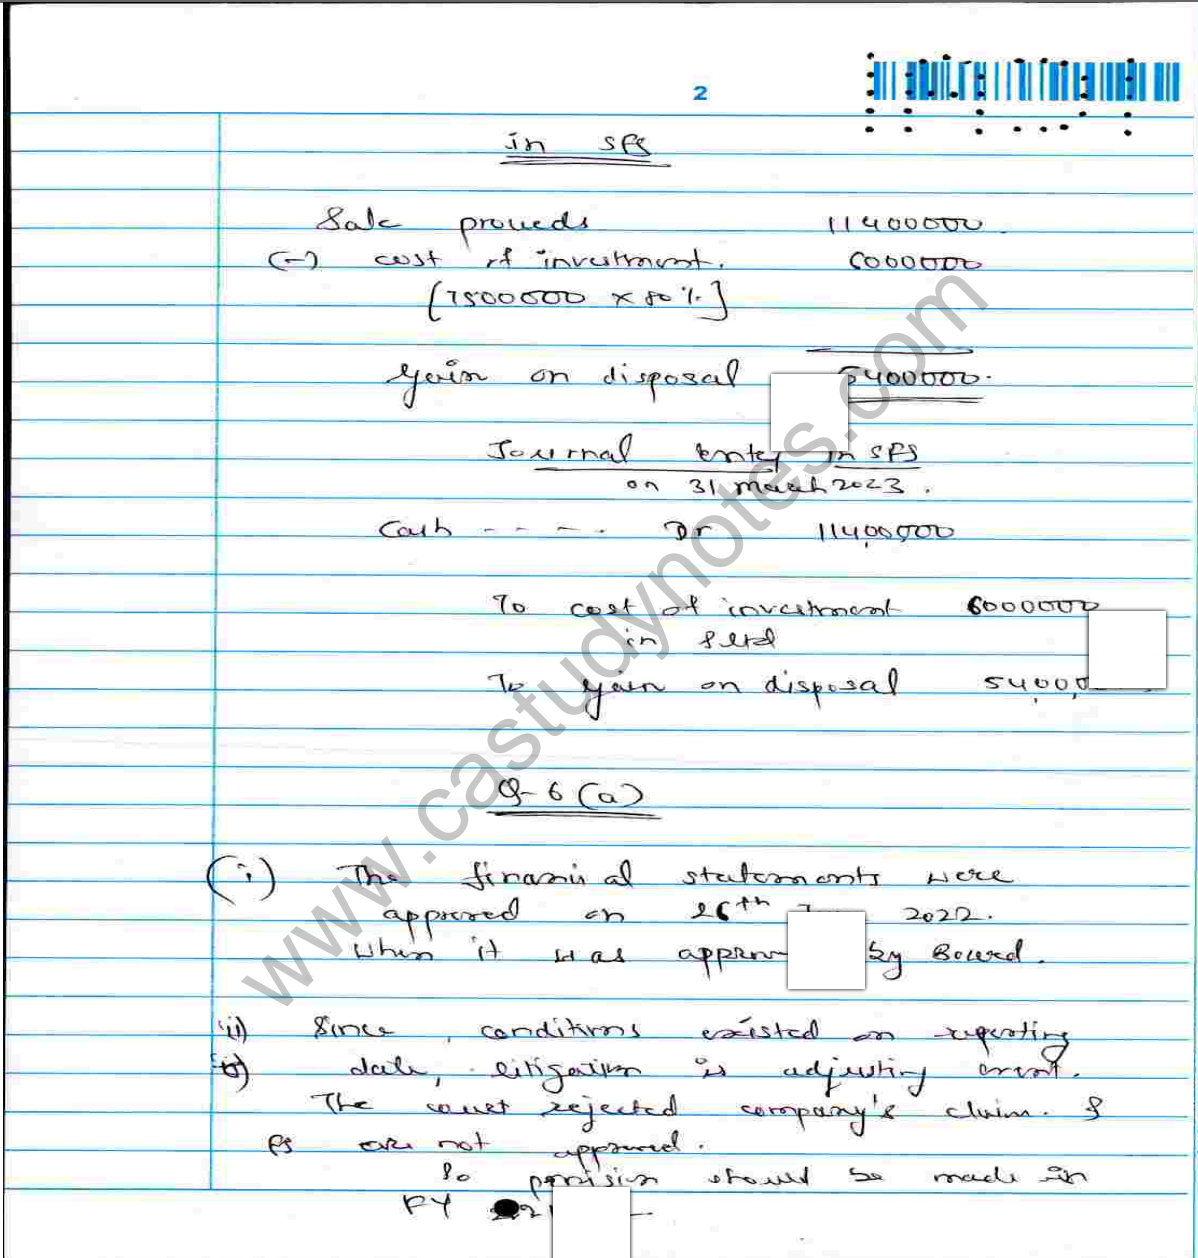 2
in SFS
Sale proceeds 11400000
(-) cost of investment. 6000000
[7500000 x 80 %]
Gain on disposal 5400000.
Journal entry in SFS
on 31 march 2023.
Cash - - - - . Dr 11400,000
To cost of investment 6000000
in S Ltd
To gain on disposal 5400,0
Q-6 (a)
(i) The financial statements were
approved on 26th 2022.
when it was approv by Board.
ii) Since, conditions existed on reporting
date, litigation is adjusting event.
The court rejected company's claim. &
FS are not approved.
So provision should be made in
FY
www.castudynotes.com